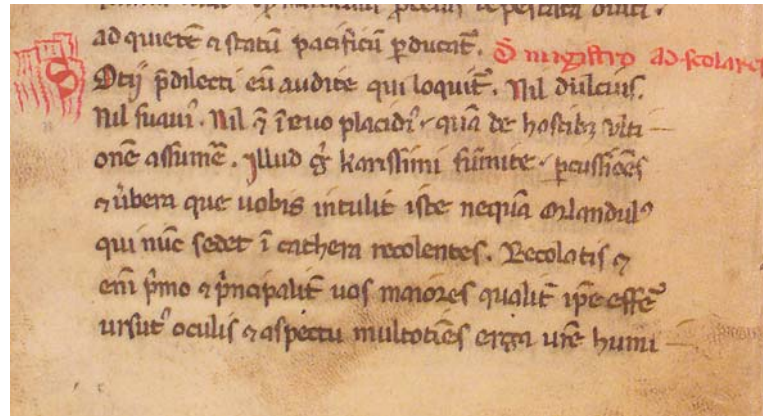 ad quietē ⁊ statū pacificū ꝑducat̄. D̄ magistro ad scolares
Sotij p̄dilecti eū audite qui loquit̄. Nil dulcius.
Nil suaui᾽. Nil ī euo placidi᾽ quā de hostibꝫ vlti
onē assumē. Illud karissimi sūmite ꝑcussiōēs
⁊ ỽbera que uobis intulit iste nequā orlandul᾽
qui nūc sedet ī cathera recolentes. Recolatis ⁊
eni p̄mo ⁊ p̄ncipalit̄ uos maiores qualit̄ ip̄e effe᾽
ursut᾽ oculis ⁊ aspectu multotiēs erga ur̄e humi